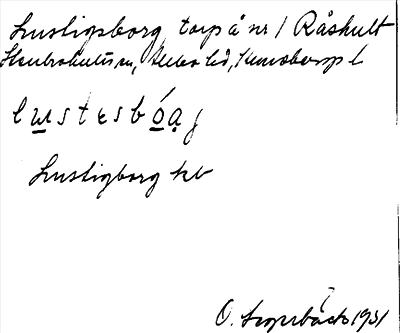 Lustigsborg, torp å nr 1 Råshult
Stenbrohults sn, Allbo hd, Kronobergs l
lustesbóaj
Lustigborg kb
O. Ingersbäck 1931